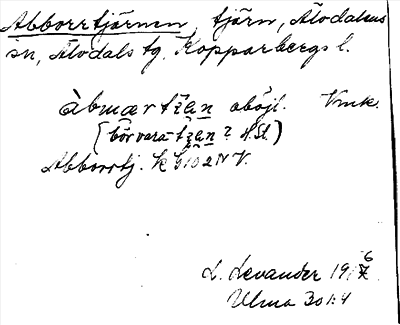 Abborrtjärnen, tjärn, Älvdalens
sn, Älvdals tg. Kopparbergs l.
àbmærtẓan oböjl. Vmk.
(bör vara tẓan? H.St.)
Abborrtj. k G102NV.
L. Levander 1916
Ulma 301:4